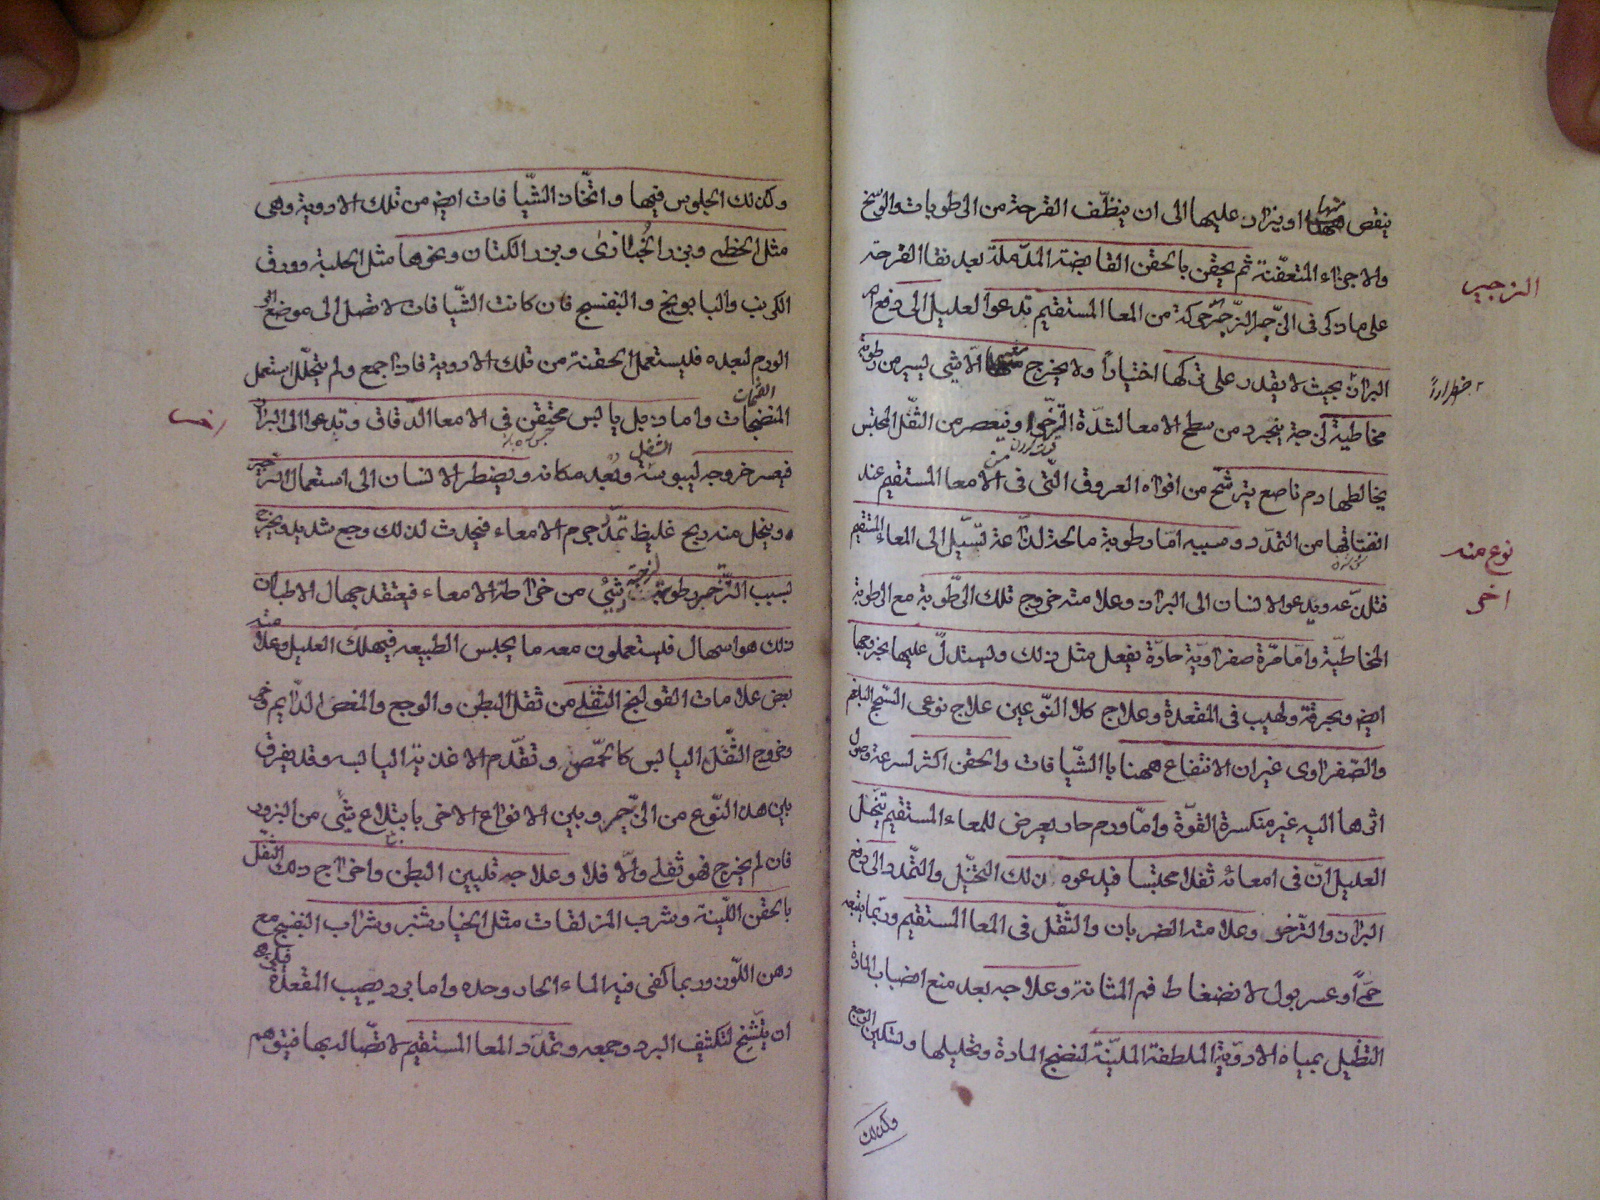 ينقص منها او يزاد عليها الى ان ينظّف القرحة من الرطوبات والوسخ
والاجزاء المتعفّنة ثم يحقن بالحقن القابضة المدّملة بعد نقا القرحة
على ما ذكر فى الزحير الزّحير حركة من المعا المستقيم تدعوا العليل الى دفع
البراز بحيث لا يقدر على تركها اختياراً ولا يخرج منها الّا شئ يسير من رطوبة
مخاطية لزجة ينجرد من سطح الامعا لشدّة التزحّر او ينعصر من الثّفل المحتبس
يخالطها دم ناصع يترشّح من افواه العروق الّتى فى الامعا المستقيم عند
انفتاحها من التمدّد وسببه امّا رطوبة مالحة لذّاعة تسيل الى المعاء المستقيم
فتلذّعه ويدعو الانسان الى البراز وعلامته خروج تلك الرّطوبة مع الرطوبة
المخاطيّة وامّا مرّة صفراويّة حادّة يفعل مثل ذلك ويستدلّ عليها بخروجها
ايض وبحرقة ولهيب فى المقعدة وعلاج كلا النّوعين علاج نوعى السّحج البلغمى
والصّفراوى غير ان الانتفاع ههنا بالشّيافات والحقن اكثر لسرعة وصول
اثرها اليه غير منكسرة القوّة وامّا ورم حار يعرض للمعاء المستقيم يتخيّل
العليل انّ فى امعائه ثفلا محتبسا فيدعوه ذلك التخيّل والتّمدد الى دفع
البراز والتزحّر وعلامته الضربان والثّقل فى المعا المستقيم وربما يتبعه
حمّى او عسر بول لانضغاط فم المثانة وعلاجه بعد منع انصباب المادّة
التنطيل بمياه الادوية الملطفة المليّنة لنضج المادة وتحليلها وتسكين الوجع
وكذلك
الزحير
اضطراراً
نوع منه
اخر
وكذلك الجلوس فيها واتّخاذ الشّيافات ايض من تلك الادوية وهى
مثل الخطمى وبزر الخبّازى وبزر الكتان ونحوها مثل الحلبة وورق
الكرنب والبابونج والبنفسج فان كانت الشّيافات لا تصل الى موضع
الورم لبعده فليستعمل الحقنة من تلك الادوية فاذا جمع ولم يتحلّل استعمل
المنضجات واما زبل يابس محتقن فى الامعا الدقاق وتدعوا الى البراز
فيعسر خروجه ليبوسته وبُعد مكانه ويضطر الانسان الى استعمال التزحير
وينحل منه ريح غليظ تمدّد جرم الامعاء فيحدث لذلك وجع شديد ويخرج
بسبب التّزحير رطوبة لزجة وشئ من خراطة الامعاء فيعتقد جهال الاطباء ان
ذلك هو اسهال فيستعملون معه ما يحبس الطبيعه فيهلك العليل وعلامته
بعض علامات القولنج الثفلى من ثقل البطن والوجع والمغص الدّايم
وخروج الثّفل اليابس كالحمّص وتقدّم الاغذية اليابسه وقد يفرق
بين هذا النّوع من الزحير وبين الانواع الاخر بابتلاع شئ من البزور
فان لم يخرج فهو ثفلى والّا فلا وعلاجه تليين البطن واخراج ذلك الثّفل
بالحقن اللّينة وشرب المزلقات مثل الخيارشنبر وشراب البنفسج مع
دهن اللّوز وربما كفى فيه الماء الحار وحده واما برد يصيب المقعدة
ان يتشنّج لتكثيف البرد وجمعه وتمدّد المعا المستقيم لاتّصاله بها فيتوهم
اخر